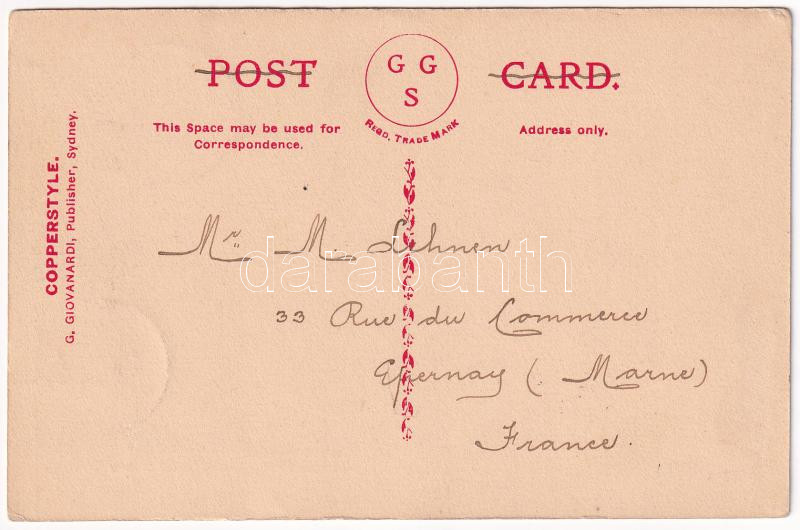 POST CARD.
G G
S
REGD. TRADE MARK
This Space may be used for
Correspondence.
Address only.
COPPERSTYLE.
G. GIOVANARDI, Publisher, Sydney.
Mr. M. Lehnen
darabanth
33 Rue du Commerce
Epernay (Marne)
France.